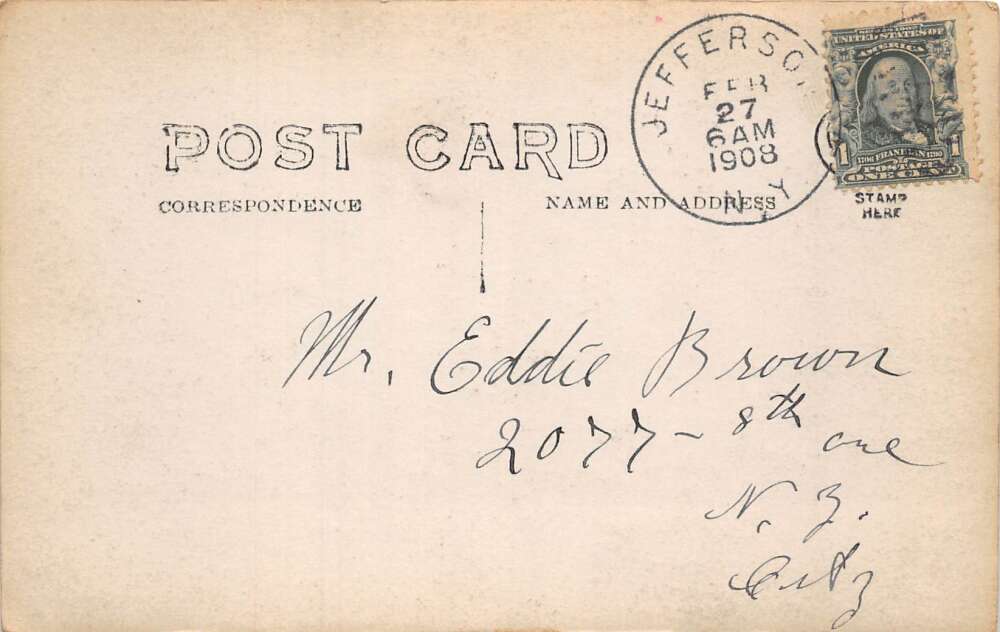 POST CARD
CORRESPONDENCE
NAME AND ADDRESS
JEFFERSON
FEB
27
6 AM
1908
N.Y
SERIES 1902
UNITED STATES OF
AMERICA
1 1706 FRANKLIN 1790 1
POSTAGE
ONE CENT
STAMP
HERE
Mr. Eddie Brown
2077 - 8th ave
N. Y.
City